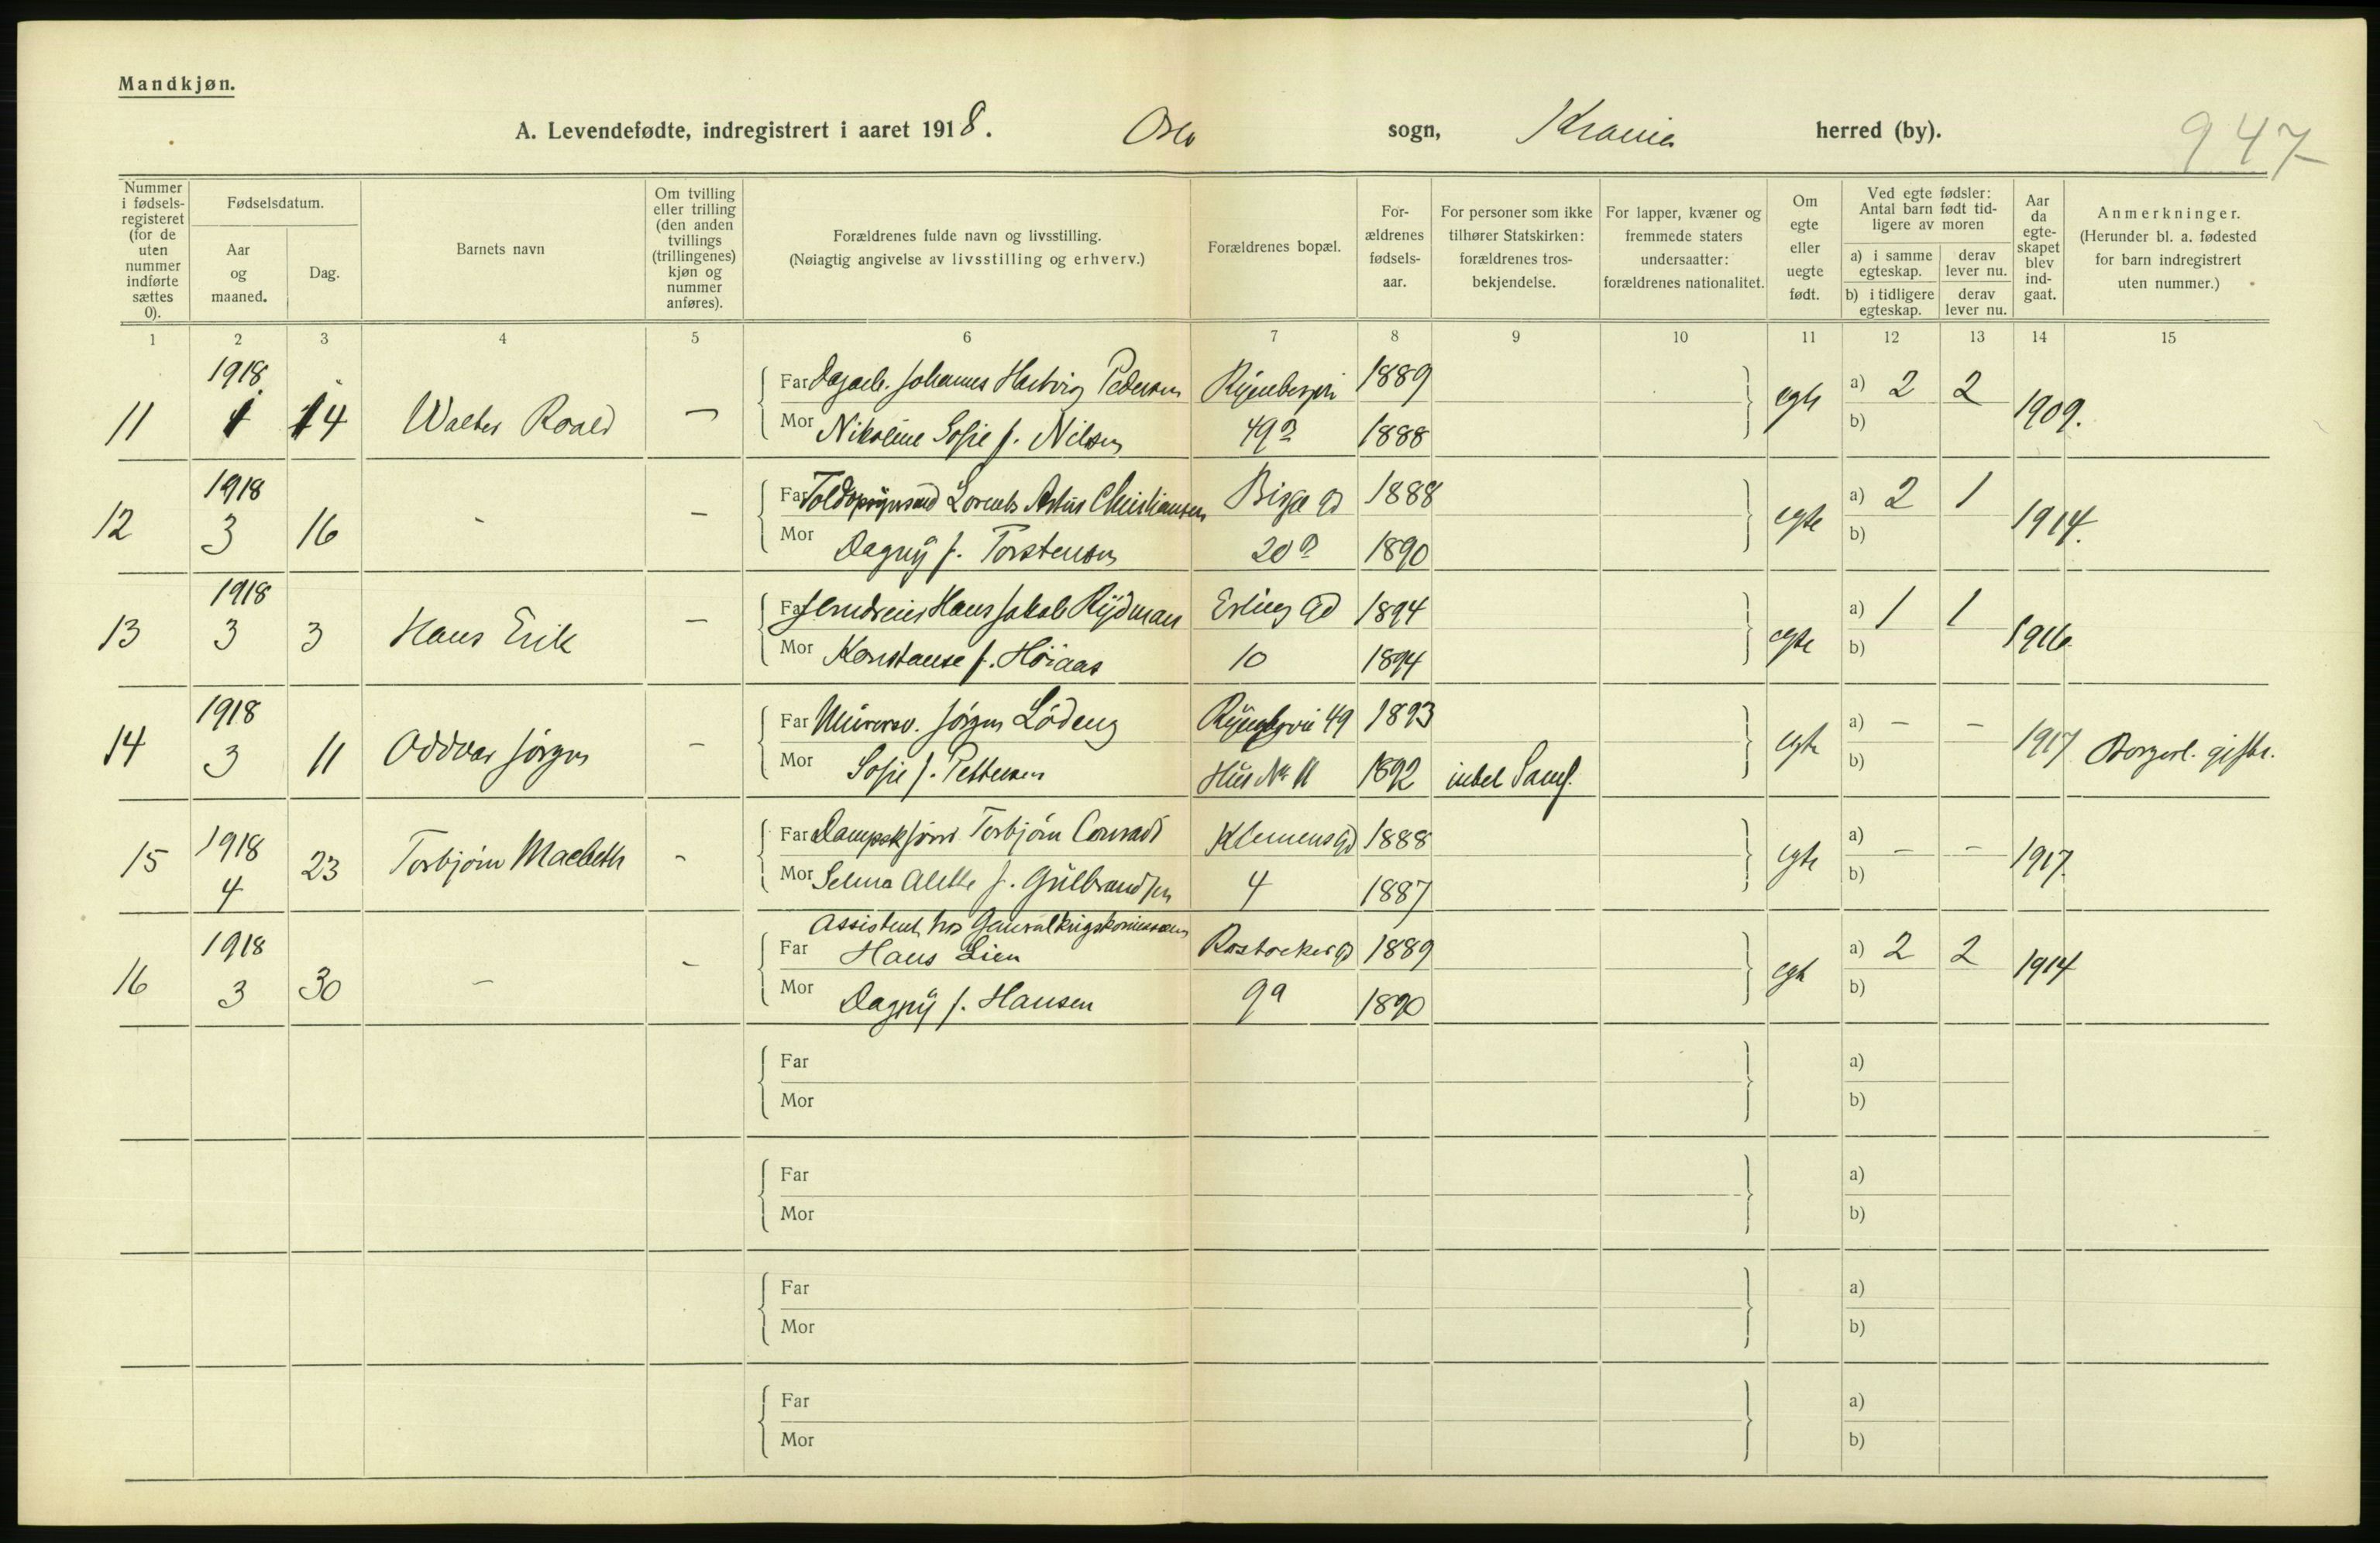 Mandkjøn.
A. Levendefødte, indregistrert i aaret 1918. Oslo sogn, Krania herred (by).
947
Nummer i fødsels-registeret (for de uten nummer indførte sættes 0).
Fødselsdatum.
Aar og maaned.
Dag.
Barnets navn
Om tvilling eller trilling (den anden tvillings (trillingenes) kjøn og nummer anføres).
Forældrenes fulde navn og livsstilling.
(Nøiagtig angivelse av livsstilling og erhverv.)
Forældrenes bopæl.
For-ældrenes fødsels-aar.
For personer som ikke tilhører Statskirken: forældrenes tros-bekjendelse.
For lapper, kvæner og fremmede staters undersaatter: forældrenes nationalitet.
Om egte eller uegte født.
Ved egte fødsler: Antal barn født tid-ligere av moren
a) i samme egteskap.
derav lever nu.
b) i tidligere egteskap.
derav lever nu.
Aar da egte-skapet blev ind-gaat.
Anmerkninger.
(Herunder bl. a. fødested for barn indregistrert uten nummer.)
1 2 3 4 5 6 7 8 9 10 11 12 13 14 15
11 1918 14 Walter Roald —
Far Dagarb. Johannes Hartvig Pedersen 1889 egte a) 2 2 1909.
Mor Nikoline Sofie f. Nilsen 49a 1888 b)
12 1918 3 16 - —
Far Lorentz Artur Christiansen Bispe gd 1888 egte a) 2 1 1914.
Mor Dagny f. Torstensen 20a 1890 b)
13 1918 3 3 Hans Erik —
Far Hans Jakob Rydman Erling gd 1894 egte a) 1 1 1916
Mor Konstanse f. Höiaas 10 1894 b)
14 1918 3 11 Oddvar Jörgen —
Far Jörgen Lödeng 49 1893 egte a) — — 1917 Borgerl. gifte.
Mor Sofie f. Pettersen Hus No 11 1892 inbel Samf. b)
15 1918 4 23 Torbjörn Macbeth -
Far Torbjörn Conradi Klemens gd 1888 egte a) — — 1917.
Mor Selma Alette f. Gulbrandsen 4 1887 b)
16 1918 3 30 — —
Assistent hos Generalkrigskomissæren
Far Hans Lien Rostocker gd 1889 egte a) 2 2 1914
Mor Dagny f. Hansen 9a 1890 b)
Far a)
Mor b)
Far a)
Mor b)
Far a)
Mor b)
Far a)
Mor b)